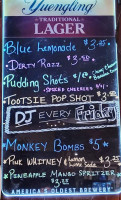 Yuengling
TRADITIONAL
LAGER
Blue Lemonade $3.25
Dirty Razz $3.25
Pudding Shots
Spiked Cherries
Tootsie Pop Shot
DJ EVERY Friday
Monkey Bombs $5
Pine Whitney
Pineapple Mango Spritzer
$3.25
AMERICA'S OLDEST BREWERY